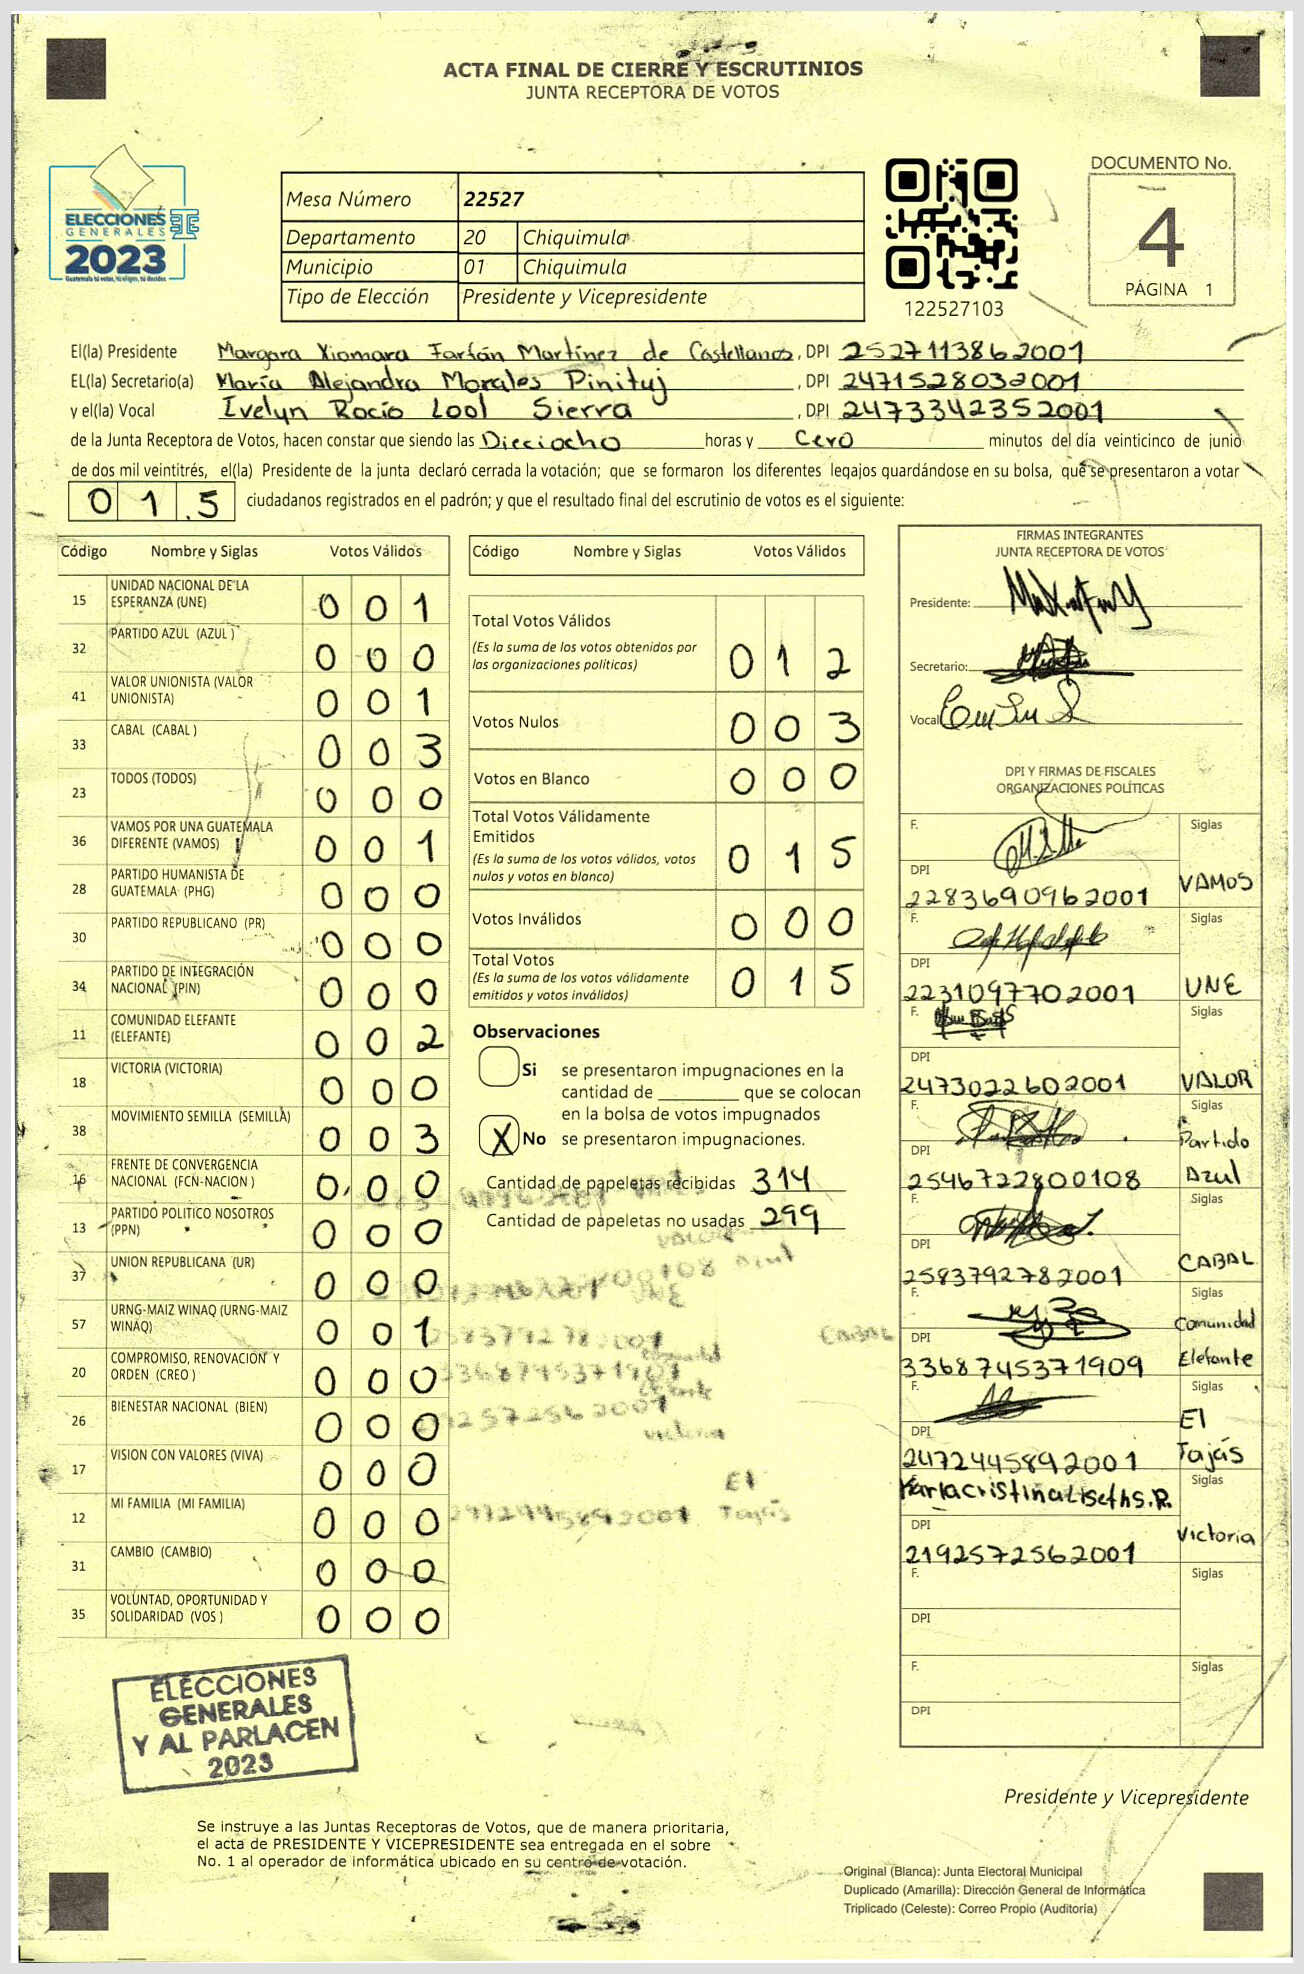 ACTA FINAL DE CIERRE Y ESCRUTINIOS
JUNTA RECEPTORA DE VOTOS
ELECCIONES
GENERALES
2023
Guatemala tú votas, tú eliges, tú decides
Mesa Número 22527
Departamento 20 Chiquimula
Municipio 01 Chiquimula
Tipo de Elección Presidente y Vicepresidente
122527103
DOCUMENTO No.
4
PÁGINA 1
El(la) Presidente Margara Xiomara Farfán Martínez de Castellanos, DPI 2527113862001
EL(la) Secretario(a) María Alejandra Morales Pinituj, DPI 2471528032001
y el(la) Vocal Ivelyn Rocío Lool Sierra, DPI 2473342352001
de la Junta Receptora de Votos, hacen constar que siendo las Dieciocho horas y Cero minutos del día veinticinco de junio
de dos mil veintitrés, el(la) Presidente de la junta declaró cerrada la votación; que se formaron los diferentes legajos guardándose en su bolsa, que se presentaron a votar
0 1 5 ciudadanos registrados en el padrón; y que el resultado final del escrutinio de votos es el siguiente:
Código Nombre y Siglas Votos Válidos
15 UNIDAD NACIONAL DE LA ESPERANZA (UNE) 0 0 1
32 PARTIDO AZUL (AZUL ) 0 0 0
41 VALOR UNIONISTA (VALOR UNIONISTA) 0 0 1
33 CABAL (CABAL ) 0 0 3
23 TODOS (TODOS) 0 0 0
36 VAMOS POR UNA GUATEMALA DIFERENTE (VAMOS) 0 0 1
28 PARTIDO HUMANISTA DE GUATEMALA (PHG) 0 0 0
30 PARTIDO REPUBLICANO (PR) 0 0 0
34 PARTIDO DE INTEGRACIÓN NACIONAL (PIN) 0 0 0
11 COMUNIDAD ELEFANTE (ELEFANTE) 0 0 2
18 VICTORIA (VICTORIA) 0 0 0
38 MOVIMIENTO SEMILLA (SEMILLA) 0 0 3
16 FRENTE DE CONVERGENCIA NACIONAL (FCN-NACION ) 0 0 0
13 PARTIDO POLITICO NOSOTROS (PPN) 0 0 0
37 UNION REPUBLICANA (UR) 0 0 0
57 URNG-MAIZ WINAQ (URNG-MAIZ WINAQ) 0 0 1
20 COMPROMISO, RENOVACION Y ORDEN (CREO ) 0 0 0
26 BIENESTAR NACIONAL (BIEN) 0 0 0
17 VISION CON VALORES (VIVA) 0 0 0
12 MI FAMILIA (MI FAMILIA) 0 0 0
31 CAMBIO (CAMBIO) 0 0 0
35 VOLUNTAD, OPORTUNIDAD Y SOLIDARIDAD (VOS ) 0 0 0
Código Nombre y Siglas Votos Válidos
Total Votos Válidos 0 1 2
(Es la suma de los votos obtenidos por
las organizaciones políticas)
Votos Nulos 0 0 3
Votos en Blanco 0 0 0
Total Votos Válidamente
Emitidos 0 1 5
(Es la suma de los votos válidos, votos
nulos y votos en blanco)
Votos Inválidos 0 0 0
Total Votos 0 1 5
(Es la suma de los votos válidamente
emitidos y votos inválidos)
Observaciones
Si se presentaron impugnaciones en la
cantidad de ________ que se colocan
en la bolsa de votos impugnados
X No se presentaron impugnaciones.
Cantidad de papeletas recibidas 314
Cantidad de papeletas no usadas 299
FIRMAS INTEGRANTES
JUNTA RECEPTORA DE VOTOS
Presidente:
Secretario:
Vocal
DPI Y FIRMAS DE FISCALES
ORGANIZACIONES POLÍTICAS
F. Siglas
DPI VAMOS
2283690962001
F. Siglas
DPI
2231097702001 UNE
F. Siglas
DPI
2473022602001 VALOR
F. Siglas
DPI Partido
2546722800108 Azul
F. Siglas
DPI
2583792782001 CABAL
F. Siglas
DPI Comunidad
3368745371909 Elefante
F. Siglas
DPI El
2472445892001 Tajás
Karlacristinaliseths.R. Siglas
DPI Victoria
2192572562001
F. Siglas
DPI
F. Siglas
DPI
ELECCIONES
GENERALES
Y AL PARLACEN
2023
Presidente y Vicepresidente
Se instruye a las Juntas Receptoras de Votos, que de manera prioritaria,
el acta de PRESIDENTE Y VICEPRESIDENTE sea entregada en el sobre
No. 1 al operador de informática ubicado en su centro de votación.
Original (Blanca): Junta Electoral Municipal
Duplicado (Amarilla): Dirección General de Informática
Triplicado (Celeste): Correo Propio (Auditoría)